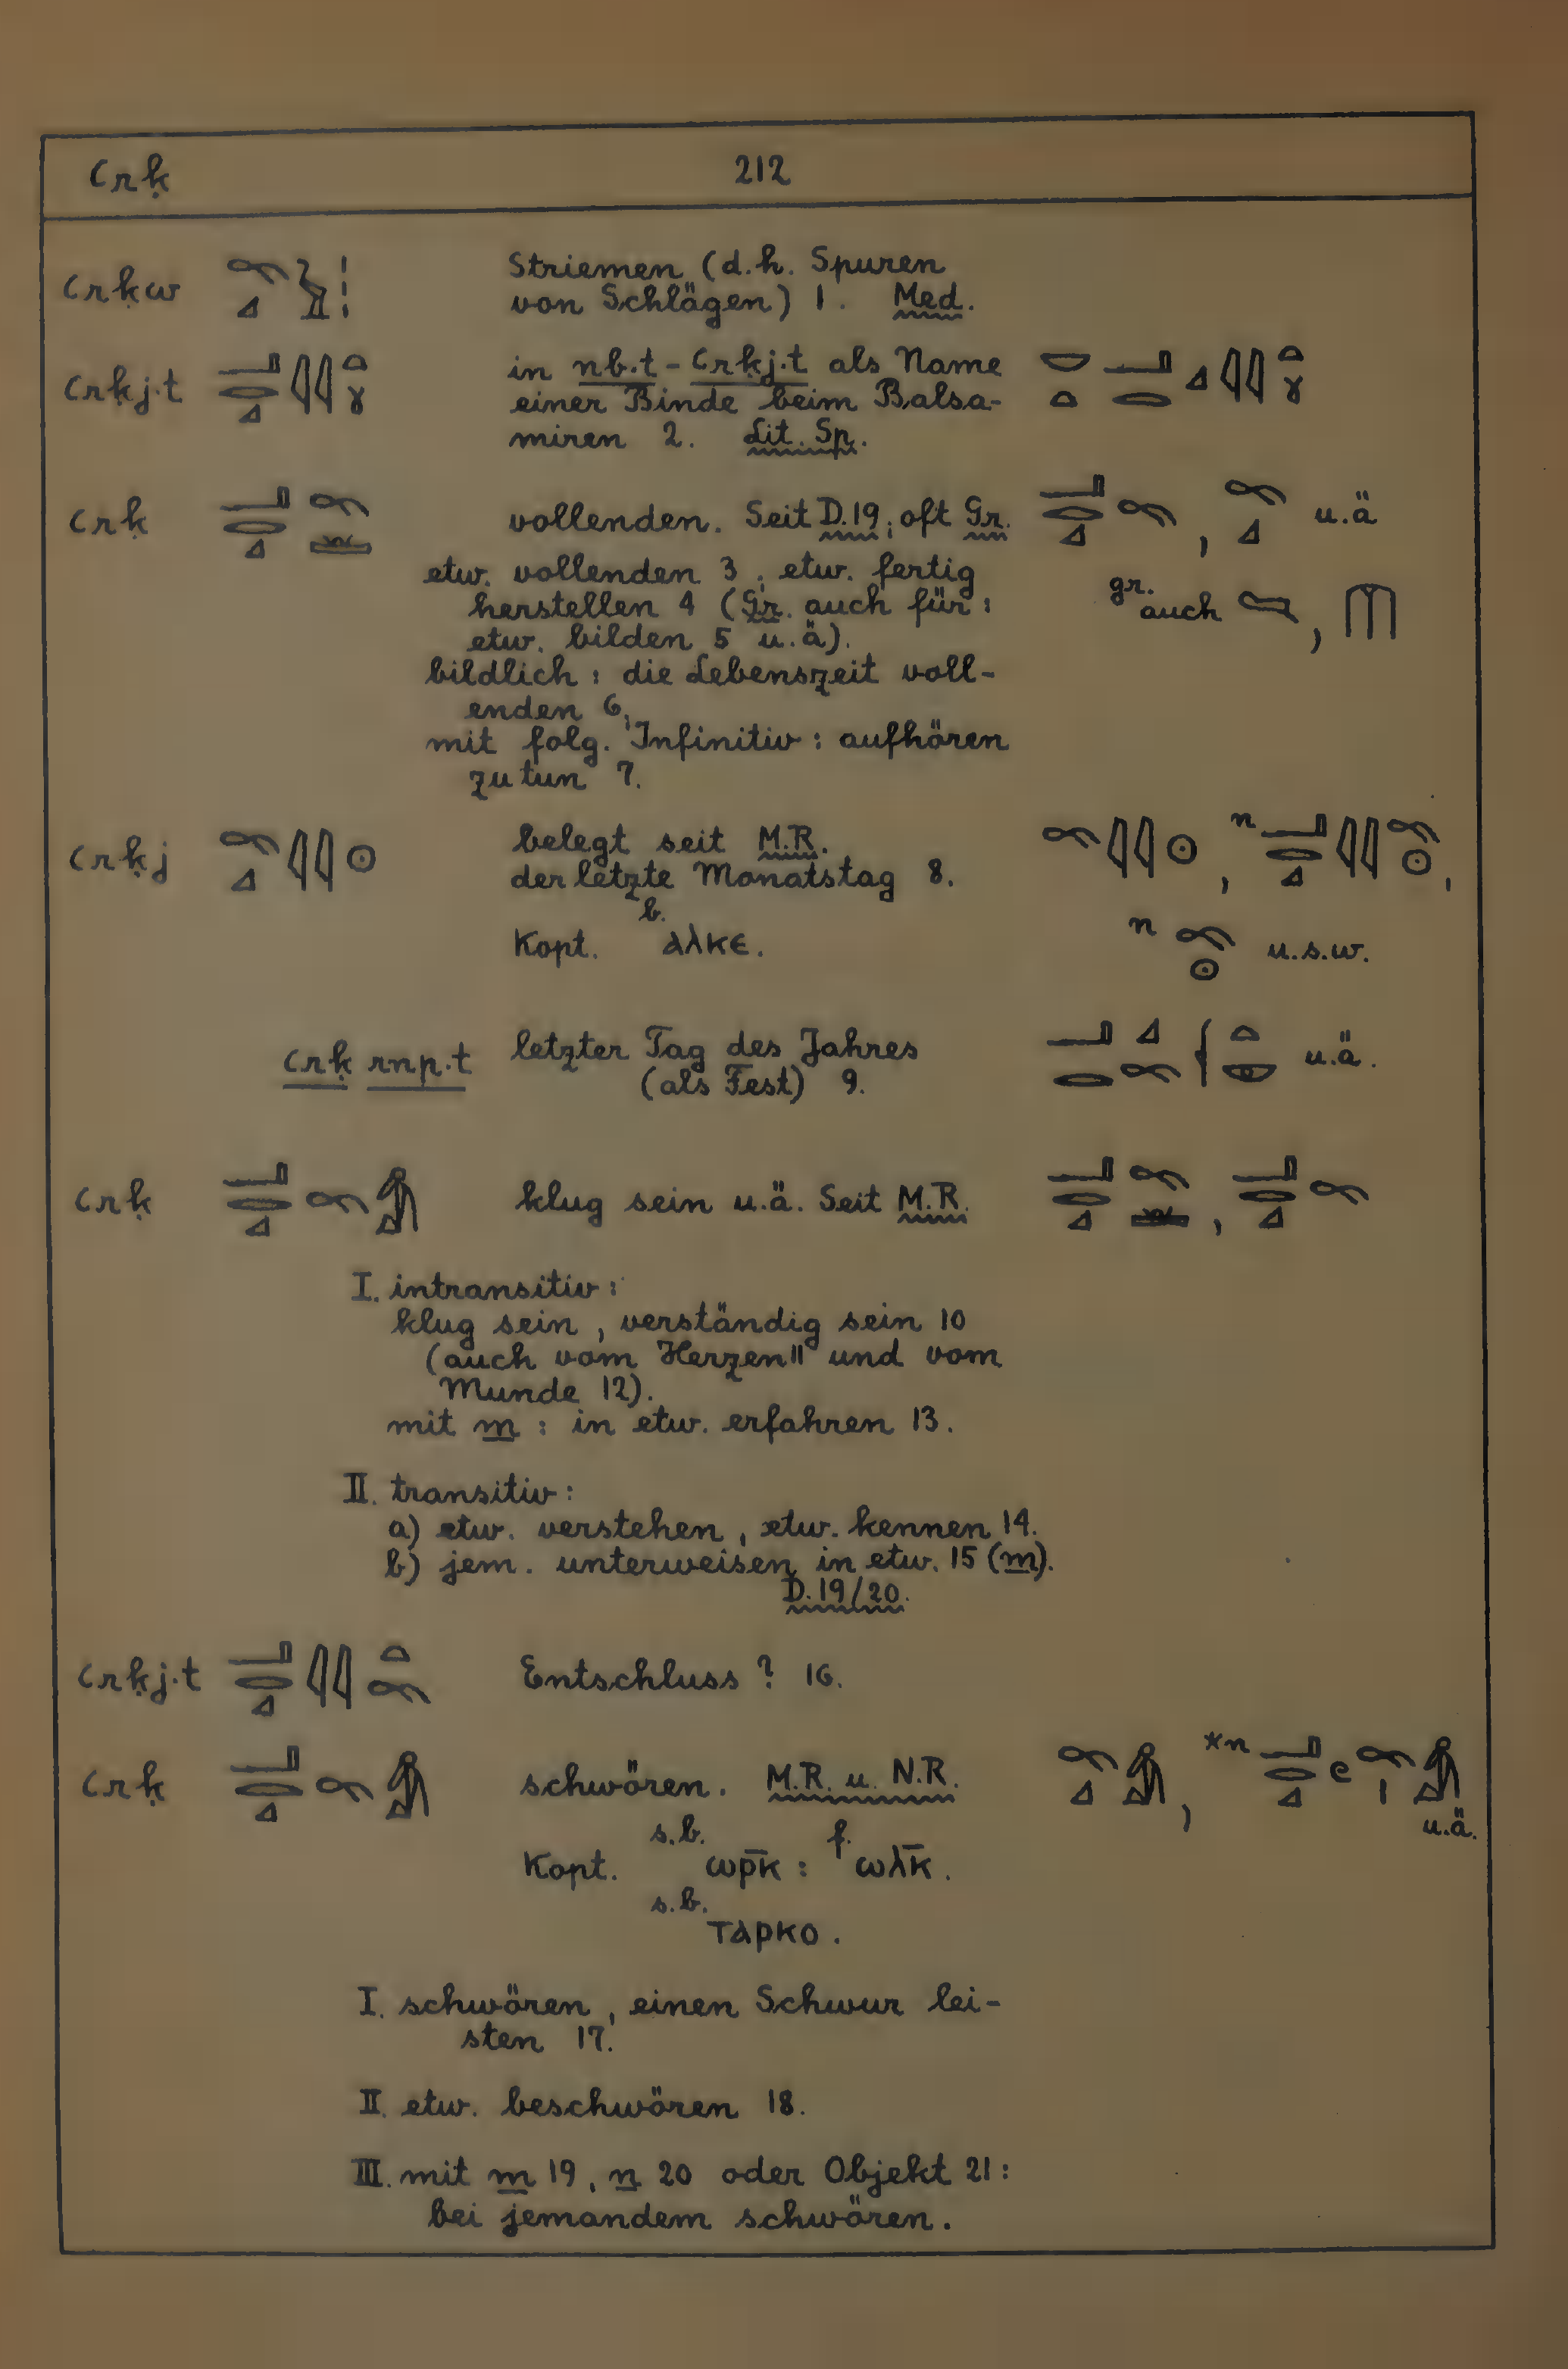 ꜥrḳ 212
ꜥrḳw Striemen (d.h. Spuren
von Schlägen) 1. Med.
ꜥrḳj.t in nb.t - ꜥrḳj.t als Name
einer Binde beim Balsa-
miren 2. Lit. Sp.
ꜥrḳ vollenden. Seit D.19, oft Gr. , u.ä
etw. vollenden 3, etw. fertig
herstellen 4 (Gr. auch für: gr. auch ,
etw. bilden 5 u.ä).
bildlich: die Lebenszeit voll-
enden 6,
mit folg. Infinitiv: aufhören
zu tun 7.
ꜥrḳj belegt seit M.R. , n ,
der letzte Monatstag 8.
Kopt. b. ⲁⲗⲕⲉ. n u.s.w.
ꜥrḳ rnp.t letzter Tag des Jahres u.ä.
(als Fest) 9.
ꜥrḳ klug sein u.ä. Seit M.R. ,
I. intransitiv:
klug sein, verständig sein 10
(auch vom Herzen 11 und vom
Munde 12).
mit m: in etw. erfahren 13.
II. transitiv:
a) etw. verstehen, etw. kennen 14.
b) jem. unterweisen in etw. 15 (m).
D. 19/20.
ꜥrḳj.t Entschluss? 16.
ꜥrḳ schwören. M.R. u. N.R. , *n u.ä.
Kopt. s.b. ⲱⲣⲕ̄ : f. ⲱⲗⲕ̄.
s.b. ⲧⲁⲣⲕⲟ.
I. schwören, einen Schwur lei-
sten 17.
II. etw. beschwören 18.
III. mit m 19, n 20 oder Objekt 21:
bei jemandem schwören.